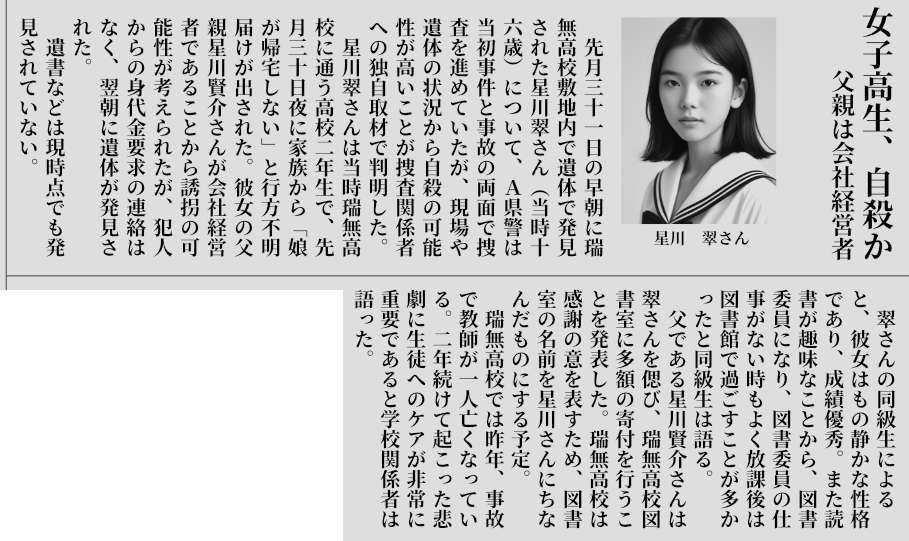 女子高生、自殺か
父親は会社経営者
星川　翠さん
　先月三十一日の早朝に瑞
無高校敷地内で遺体で発見
された星川翠さん（当時十
六歳）について、Ａ県警は
当初事件と事故の両面で捜
査を進めていたが、現場や
遺体の状況から自殺の可能
性が高いことが捜査関係者
への独自取材で判明した。
　星川翠さんは当時瑞無高
校に通う高校二年生で、先
月三十日夜に家族から「娘
が帰宅しない」と行方不明
届けが出された。彼女の父
親星川賢介さんが会社経営
者であることから誘拐の可
能性が考えられたが、犯人
からの身代金要求の連絡は
なく、翌朝に遺体が発見さ
れた。
　遺書などは現時点でも発
見されていない。
　翠さんの同級生による
と、彼女はもの静かな性格
であり、成績優秀。また読
書が趣味なことから、図書
委員になり、図書委員の仕
事がない時もよく放課後は
図書館で過ごすことが多か
ったと同級生は語る。
　父である星川賢介さんは
翠さんを偲び、瑞無高校図
書室に多額の寄付を行うこ
とを発表した。瑞無高校は
感謝の意を表すため、図書
室の名前を星川さんにちな
んだものにする予定。
　瑞無高校では昨年、事故
で教師が一人亡くなってい
る。二年続けて起こった悲
劇に生徒へのケアが非常に
重要であると学校関係者は
語った。